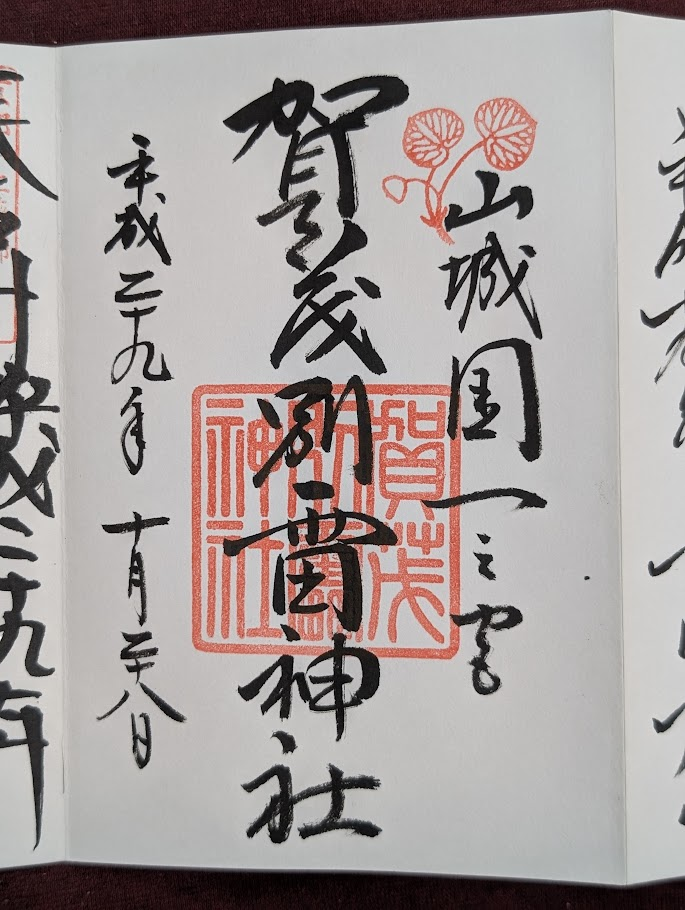 山城國一之宮
賀茂別雷神社
平成二十九年 十月二十八日
賀茂別雷神社
成二十九年